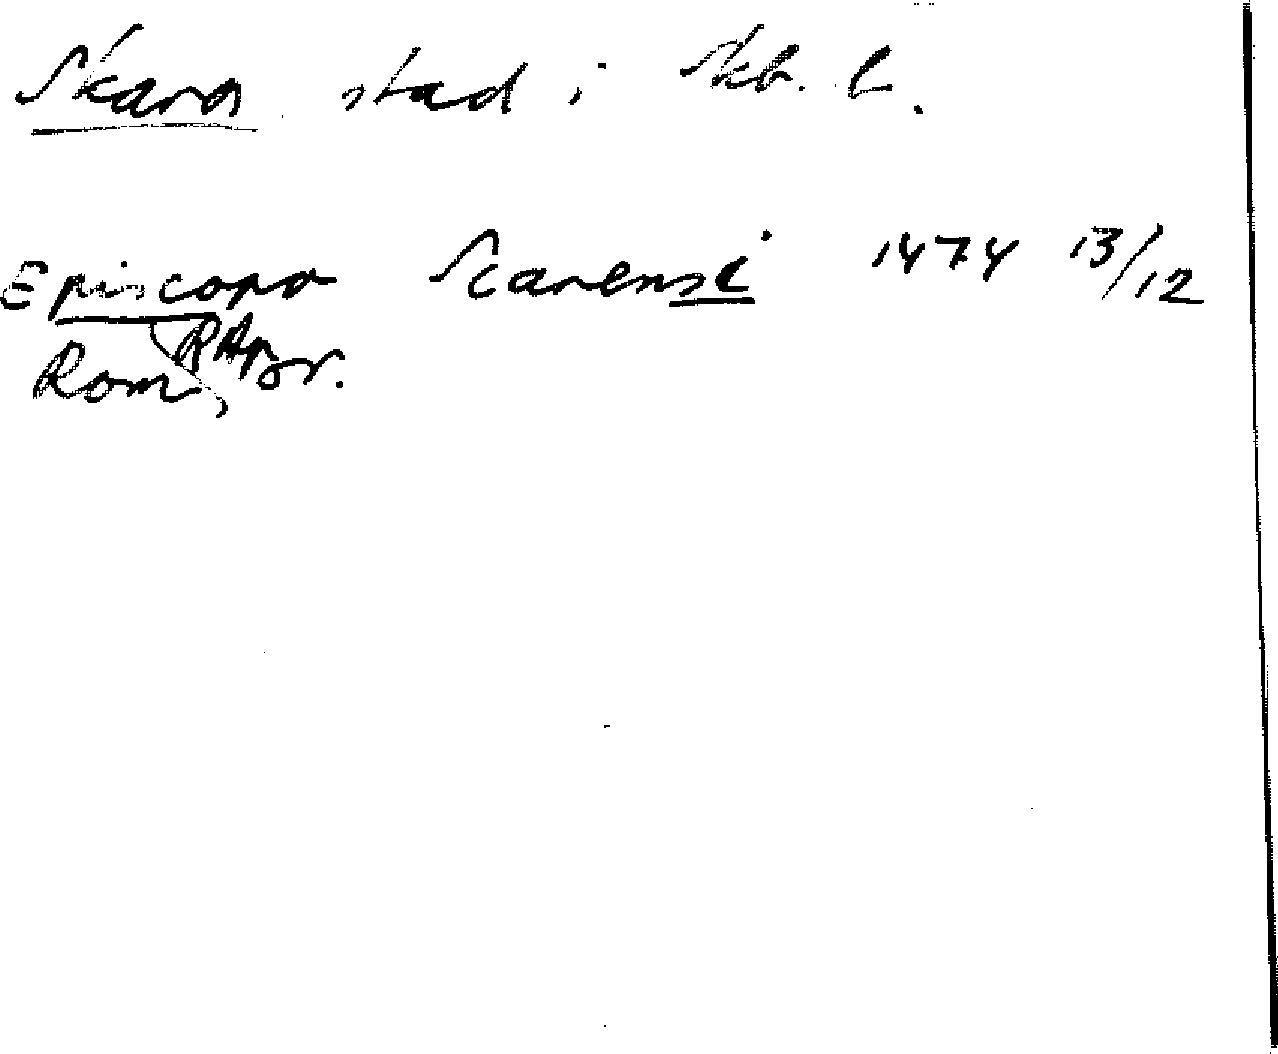 Skara stad i Skb. l.
Episcopo Scarensi 1474 13/12
Rom, RApr.